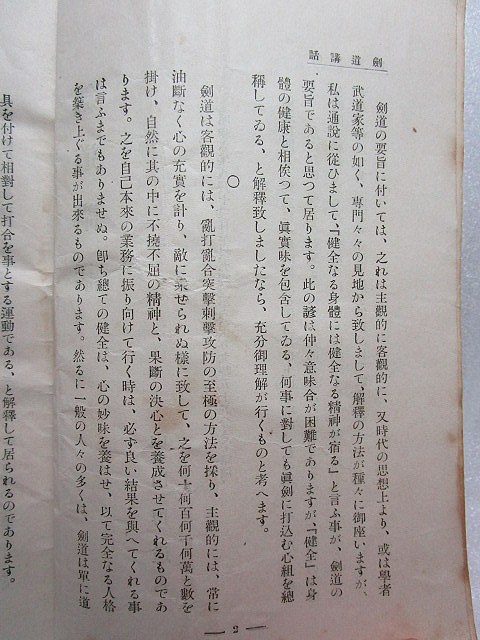 劍道講話
劍道の要旨に付いては、之れは主觀的に客觀的に、又時代の思想上より、或は學者
武道家等の如く、專門々々の見地から致しまして、解釋の方法が種々に御座いますが、
私は通說に從ひまして『健全なる身體には健全なる精神が宿る』と言ふ事が、劍道の
要旨であると思つて居ります。此の諺は仲々意味合が困難でありますが、『健全』は身
體の健康と相俟つて、眞實味を包含してゐる、何事に對しても眞劍に打込む心組を總
稱してゐる、と解釋致しましたなら、充分御理解が行くものと考へます。
○
劍道は客觀的には、亂打亂合突擊刺擊攻防の至極の方法を採り、主觀的には、常に
油斷なく心の充實を計り、敵に乘せられぬ樣に致して、之を何十何百何千何萬と數を
掛け、自然に其の中に不撓不屈の精神と、果斷の決心とを養成させてくれるものであ
ります。之を自己本來の業務に振り向けて行く時は、必ず良い結果を與へてくれる事
は言ふまでもありませぬ。卽ち總ての健全は、心の妙味を養はせ、以て完全なる人格
を築き上ぐる事が出來るものであります。然るに一般の人々の多くは、劍道は單に道
具を付けて相對して打合を事とする運動である、と解釋して居られるのであります。
— 2 —